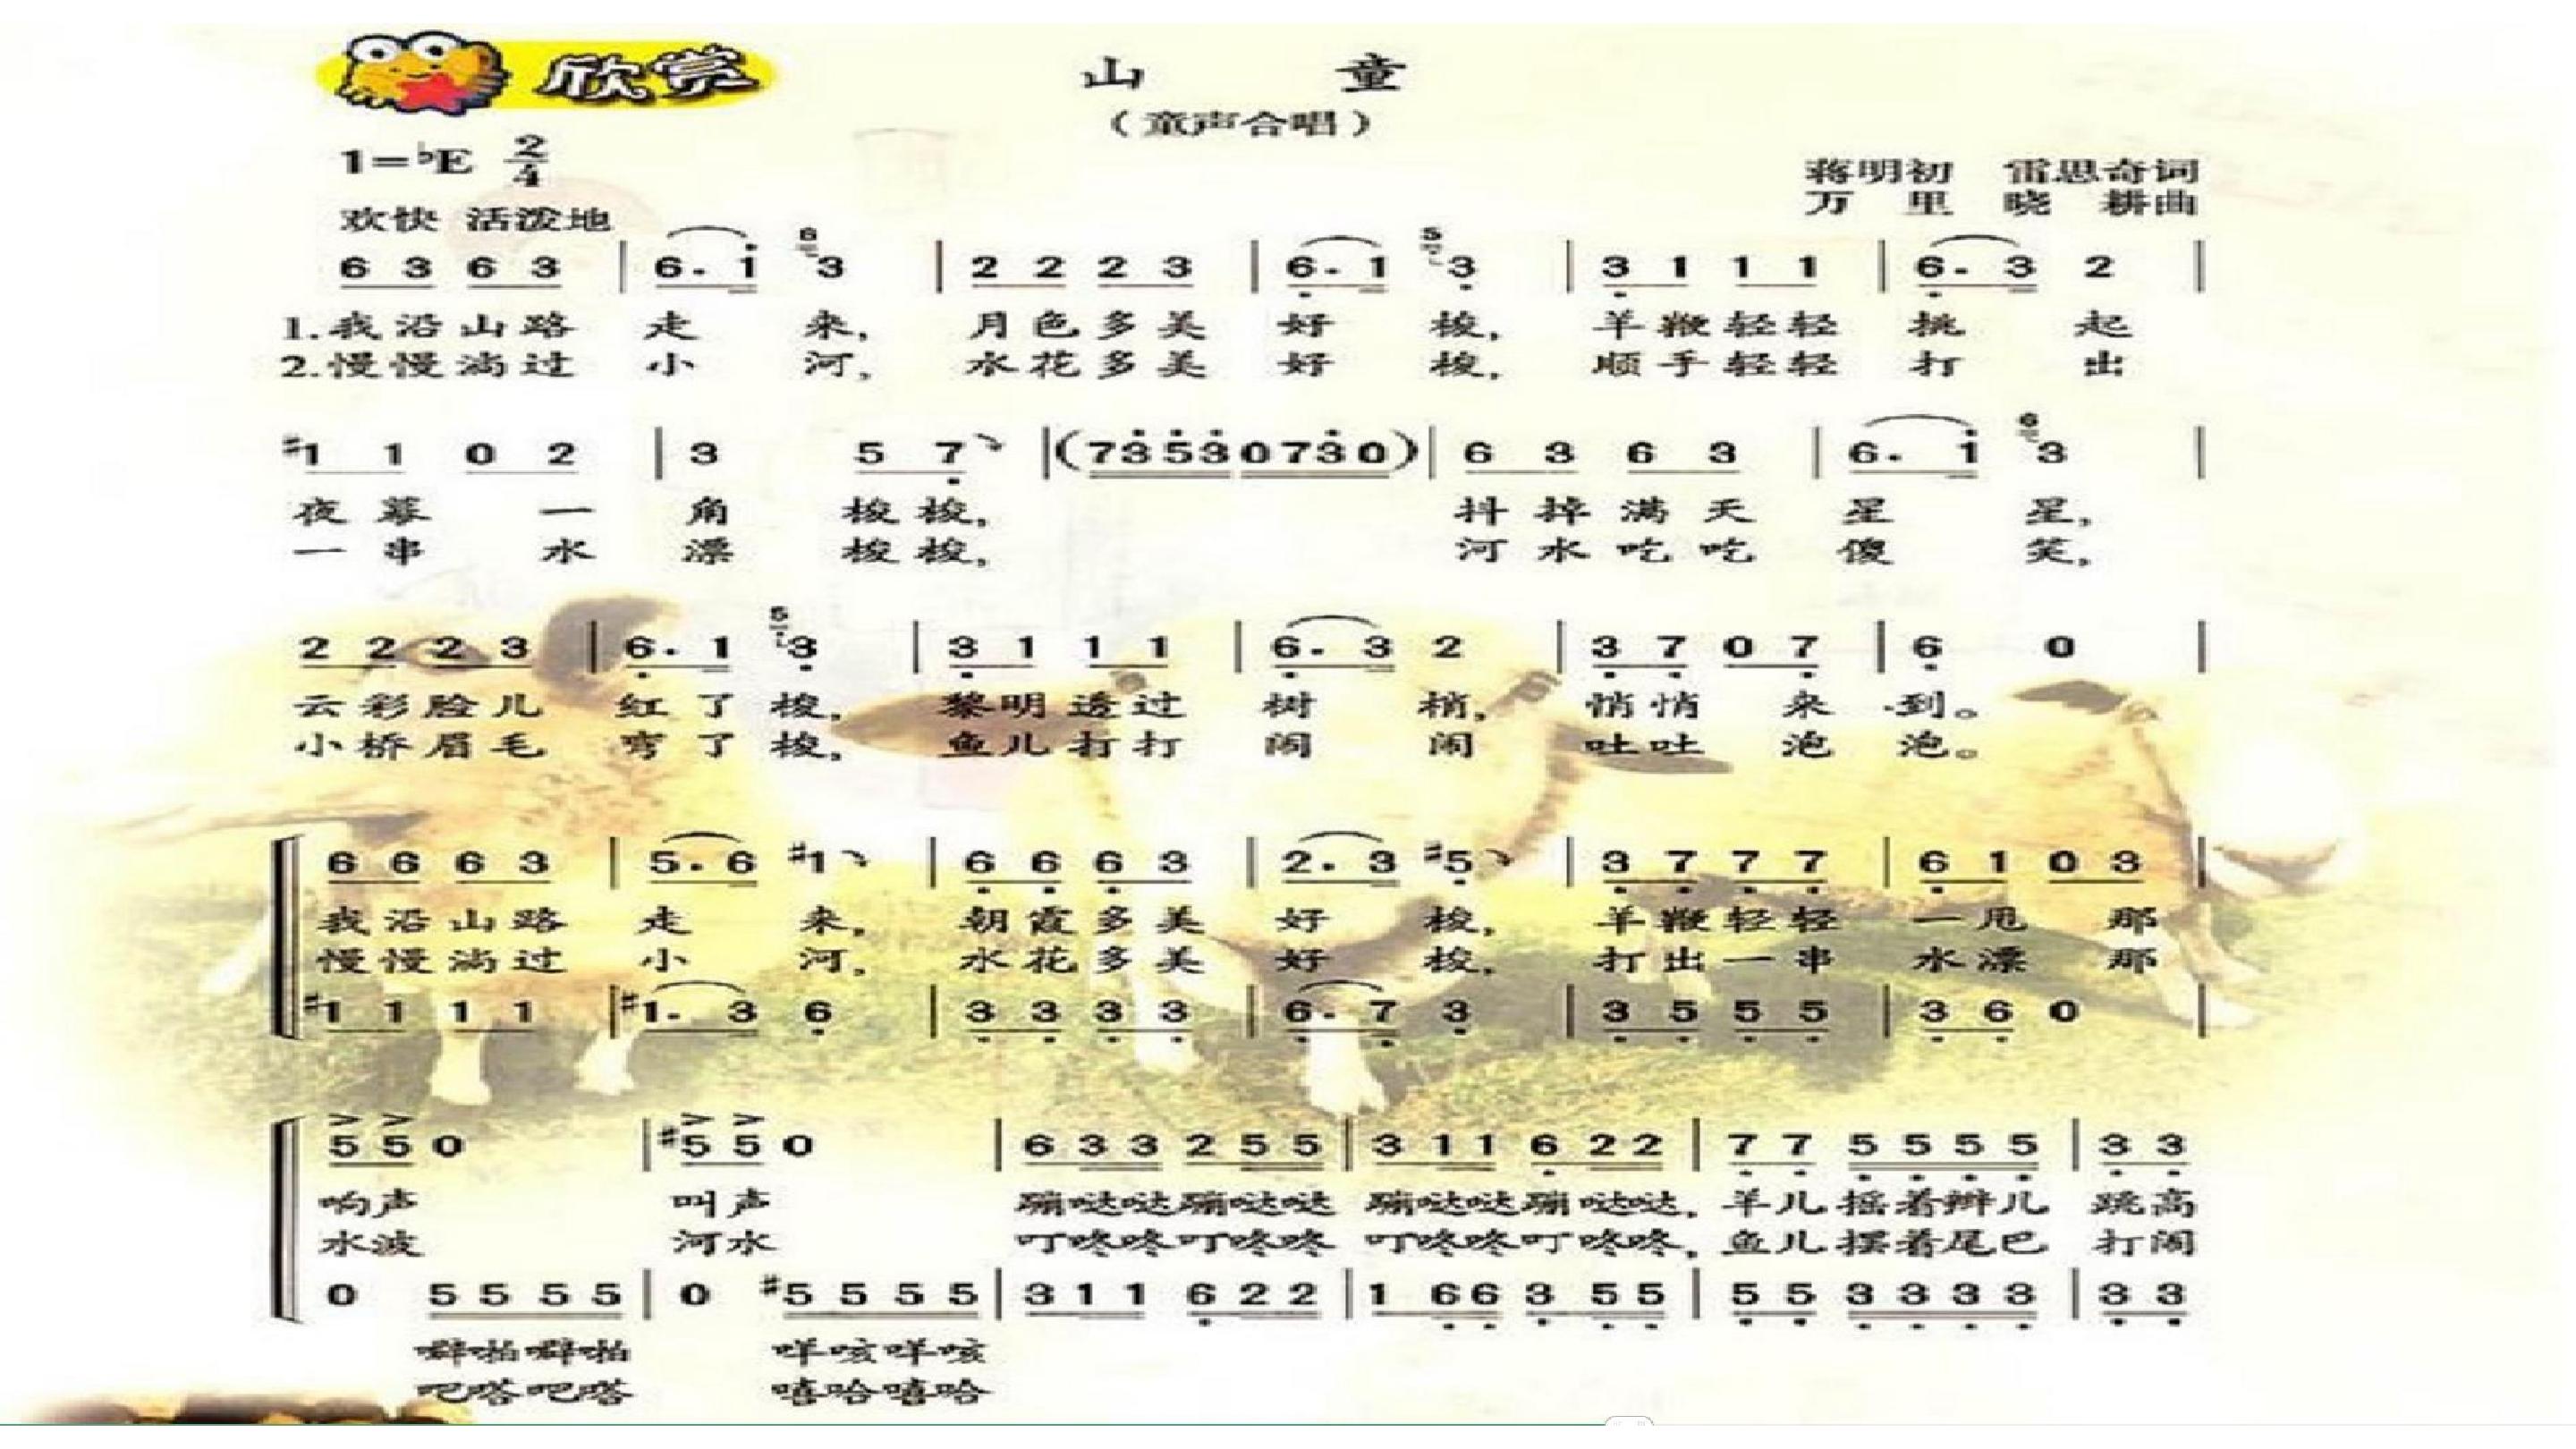 欣赏
山 童
（童声合唱）
1=♭E 2/4
蒋明初 雷思奇词
欢快 活泼地
万 里 晓 耕曲
6 3 6 3 | 6. i 6 3 | 2 2 2 3 | 6. 1 5 3 | 3 1 1 1 | 6. 3 2 |
1.我沿山路 走 来, 月色多美 好 梭, 羊鞭轻轻 挑 起
2.慢慢淌过 小 河, 水花多美 好 梭, 顺手轻轻 打 出
#1 1 0 2 | 3 5 7 | (7353 0730) | 6 3 6 3 | 6. i 6 3 |
夜幕 一 角 梭梭, 抖掉满天 星 星,
一串 水 漂 梭梭, 河水吃吃 傻 笑,
2 2 2 3 | 6. 1 5 3 | 3 1 1 1 | 6. 3 2 | 3 7 0 7 | 6 0 |
云彩脸儿 红了梭, 黎明透过 树 梢, 悄悄 来 到。
小桥眉毛 弯了梭, 鱼儿打打 闹 闹 吐吐 泡 泡。
6 6 6 3 | 5. 6 #1 | 6 6 6 3 | 2. 3 #5 | 3 7 7 7 | 6 1 0 3 |
我沿山路 走 来, 朝霞多美 好 梭, 羊鞭轻轻 一甩 那
慢慢淌过 小 河, 水花多美 好 梭, 打出一串 水漂 那
#1 1 1 1 | #1. 3 6 | 3 3 3 3 | 6. 7 3 | 3 5 5 5 | 3 6 0 |
> > > >
5 5 0 | #5 5 0 | 6 3 3 2 5 5 | 3 1 1 6 2 2 | 7 7 5 5 5 5 | 3 3
响声 叫声 蹦哒哒蹦哒哒 蹦哒哒蹦哒哒, 羊儿摇着辫儿 跳高
水波 河水 叮咚咚叮咚咚 叮咚咚叮咚咚, 鱼儿摆着尾巴 打闹
0 5 5 5 5 | 0 #5 5 5 5 | 3 1 1 6 2 2 | 1 6 6 3 5 5 | 5 5 3 3 3 3 | 3 3
噼啪噼啪 咩咳咩咳
吧嗒吧嗒 嘻哈嘻哈